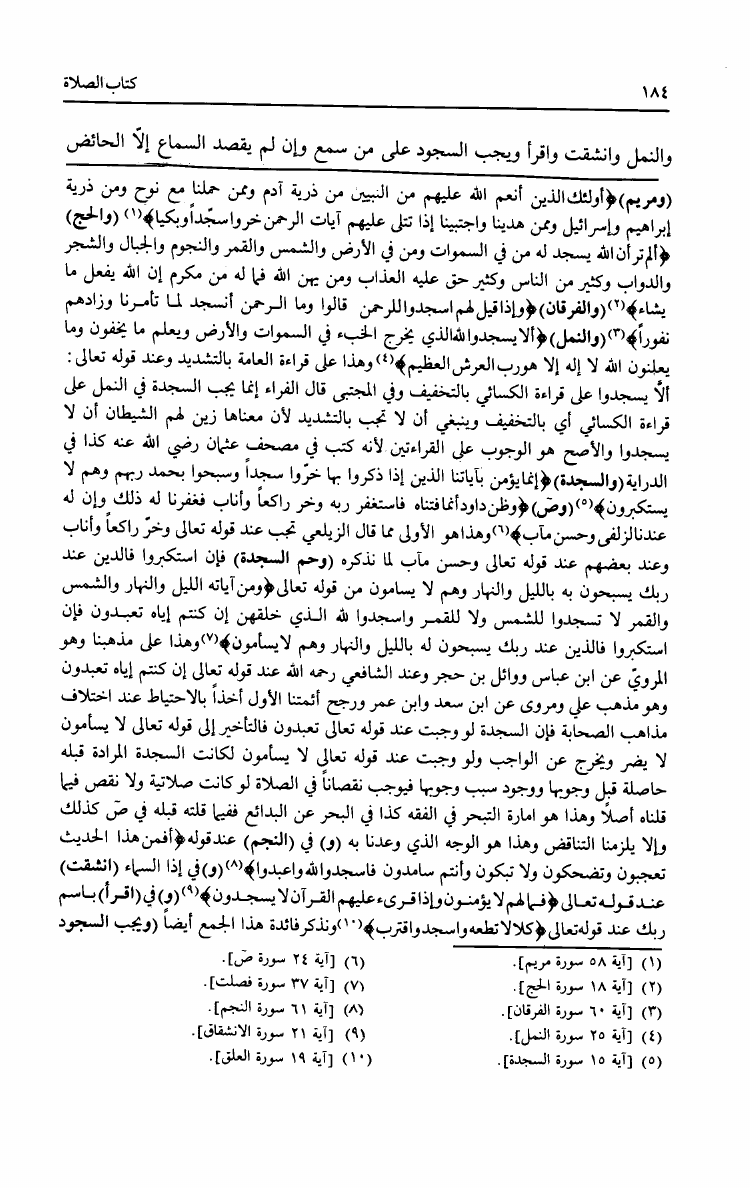 ١٨٤
كتاب الصلاة
والنمل وانشقت واقرأ ويجب السجود على من سمع وإن لم يقصد السماع إلّا الحائض
(ومريم) ﴿أولئك الذين أنعم الله عليهم من النبيين من ذرية آدم وممن حملنا مع نوح ومن ذرية
إبراهيم وإسرائيل وممن هدينا واجتبينا إذا تتلى عليهم آيات الرحمن خروا سجّداً وبكيا﴾(١) (والحج)
﴿ألم تر أن الله يسجد له من في السموات ومن في الأرض والشمس والقمر والنجوم والجبال والشجر
والدواب وكثير من الناس وكثير حق عليه العذاب ومن يهن الله فما له من مكرم إن الله يفعل ما
يشاء﴾(٢) (والفرقان) ﴿وإذا قيل لهم اسجدوا للرحمن قالوا وما الرحمن أنسجد لما تأمرنا وزادهم
نفوراً﴾(٣) (والنمل) ﴿ألا يسجدوا لله الذي يخرج الخبء في السموات والأرض ويعلم ما يخفون وما
يعلنون الله لا إله إلا هو رب العرش العظيم﴾(٤) وهذا على قراءة العامة بالتشديد وعند قوله تعالى:
ألاّ يسجدوا على قراءة الكسائي بالتخفيف وفي المجتبى قال الفراء إنما يجب السجدة في النمل على
قراءة الكسائي أي بالتخفيف وينبغي أن لا تجب بالتشديد لأن معناها زين لهم الشيطان أن لا
يسجدوا والأصح هو الوجوب على القراءتين لأنه كتب في مصحف عثمان رضي الله عنه كذا في
الدراية (والسجدة) ﴿إنما يؤمن بآياتنا الذين إذا ذكروا بها خرّوا سجداً وسبحوا بحمد ربهم وهم لا
يستكبرون﴾(٥) (وصّ) ﴿وظن داود أنما فتناه فاستغفر ربه وخر راكعاً وأناب فغفرنا له ذلك وإن له
عندنا لزلفى وحسن مآب﴾(٦) وهذا هو الأولى مما قال الزيلعي تجب عند قوله تعالى وخرّ راكعاً وأناب
وعند بعضهم عند قوله تعالى وحسن مآب لما نذكره (وحم السجدة) فإن استكبروا فالدين عند
ربك يسبحون به بالليل والنهار وهم لا يسامون من قوله تعالى ﴿ومن آياته الليل والنهار والشمس
والقمر لا تسجدوا للشمس ولا للقمر واسجدوا لله الذي خلقهن إن كنتم إياه تعبدون فإن
استكبروا فالذين عند ربك يسبحون له بالليل والنهار وهم لا يسأمون﴾(٧) وهذا على مذهبنا وهو
المرويّ عن ابن عباس ووائل بن حجر وعند الشافعي رحمه الله عند قوله تعالى إن كنتم إياه تعبدون
وهو مذهب علي ومروى عن ابن سعد وابن عمر ورجح أئمتنا الأول أخذاً بالاحتياط عند اختلاف
مذاهب الصحابة فإن السجدة لو وجبت عند قوله تعالى تعبدون فالتأخير إلى قوله تعالى لا يسأمون
لا يضر ويخرج عن الواجب ولو وجبت عند قوله تعالى لا يسأمون لكانت السجدة المرادة قبله
حاصلة قبل وجوبها ووجود سبب وجوبها فيوجب نقصاناً في الصلاة لو كانت صلاتية ولا نقص فيما
قلناه أصلاً وهذا هو امارة التبحر في الفقه كذا في البحر عن البدائع ففيما قلته قبله في صّ كذلك
وإلا يلزمنا التناقض وهذا هو الوجه الذي وعدنا به (و) في (النجم) عند قوله ﴿أفمن هذا الحديث
تعجبون وتضحكون ولا تبكون وأنتم سامدون فاسجدوا لله واعبدوا﴾(٨) (و) في إذا السماء (انشقت)
عند قوله تعالى ﴿فما لهم لا يؤمنون وإذا قرىء عليهم القرآن لا يسجدون﴾(٩) (و) في (اقرأ) باسم
ربك عند قوله تعالى ﴿كلا لا تطعه واسجد واقترب﴾(١٠) ونذكر فائدة هذا الجمع أيضاً (ويجب السجود
(١) [آية ٥٨ سورة مريم].
(٢) [آية ١٨ سورة الحج].
(٣) [آية ٦٠ سورة الفرقان].
(٤) [آية ٢٥ سورة النمل].
(٥) [آية ١٥ سورة السجدة].
(٦) [آية ٢٤ سورة صّ].
(٧) [آية ٣٧ سورة فصلت].
(٨) [آية ٦١ سورة النجم].
(٩) [آية ٢١ سورة الانشقاق].
(١٠) [آية ١٩ سورة العلق].